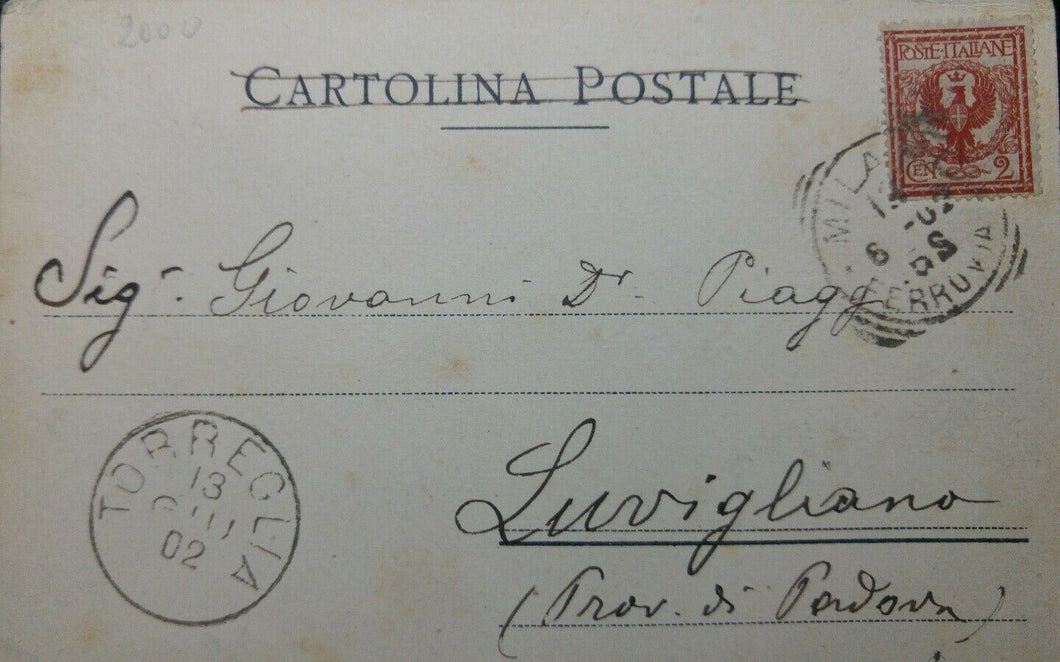 2000
CARTOLINA POSTALE
POSTE·ITALIANE
CEN 2
MILANO
FERROVIA
Sigr. Giovanni Dr. Piagg
TORREGLIA
13
02
Luvigliano
(Prov. di Padova)